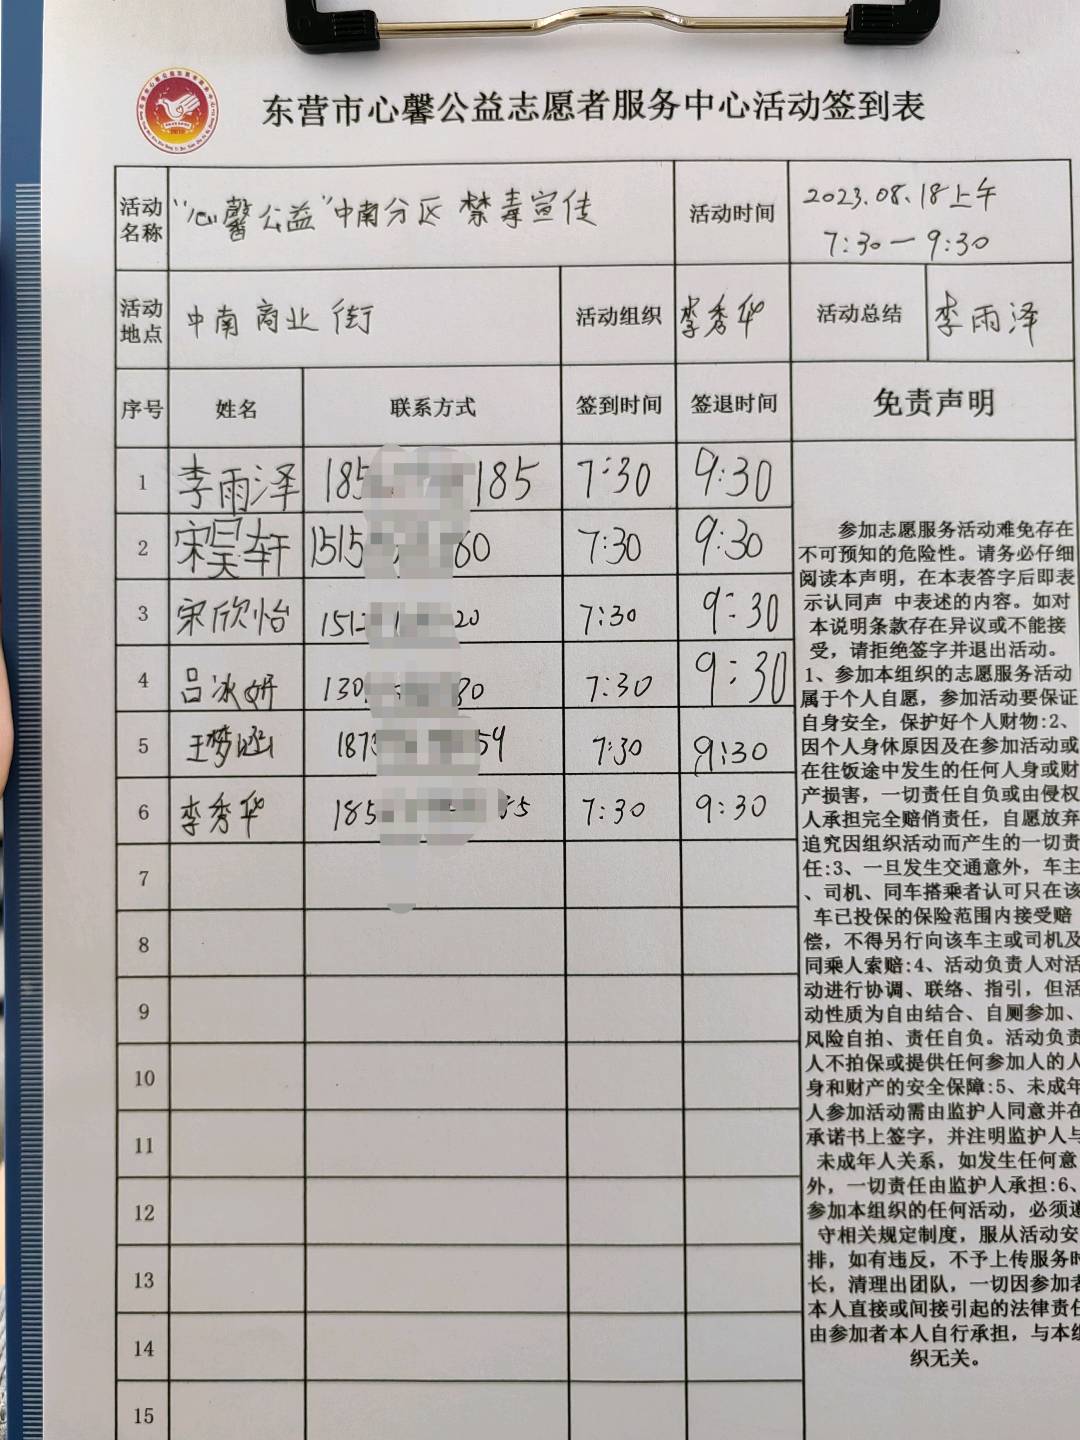 东营市心馨公益志愿者服务中心活动签到表
活动名称 “心馨公益”中南分区 禁毒宣传 活动时间 2023.08.18上午 7:30—9:30
活动地点 中南商业街 活动组织 李秀华 活动总结 李雨泽
序号 姓名 联系方式 签到时间 签退时间 免责声明
1 李雨泽 185 185 7:30 9:30
2 宋昊轩 1515 60 7:30 9:30
3 宋欣怡 151 20 7:30 9:30
4 吕冰妍 130 80 7:30 9:30
5 王梦涵 187 59 7:30 9:30
6 李秀华 185 55 7:30 9:30
7
8
9
10
11
12
13
14
15
参加志愿服务活动难免存在
不可预知的危险性。请务必仔细
阅读本声明，在本表答字后即表
示认同声 中表述的内容。如对
本说明条款存在异议或不能接
受，请拒绝签字并退出活动。
1、参加本组织的志愿服务活动
属于个人自愿，参加活动要保证
自身安全，保护好个人财物:2、
因个人身休原因及在参加活动或
在往饭途中发生的任何人身或财
产损害，一切责任自负或由侵权
人承担完全赔俏责任，自愿放弃
追究因组织活动而产生的一切责
任:3、一旦发生交通意外，车主
、司机、同车搭乘者认可只在该
车已投保的保险范围内接受赔
偿，不得另行向该车主或司机及
同乘人索赔:4、活动负责人对活
动进行协调、联络、指引，但活
动性质为自由结合、自厕参加、
风险自拍、责任自负。活动负责
人不拍保或提供任何参加人的人
身和财产的安全保障:5、未成年
人参加活动需由监护人同意并在
承诺书上签字，并注明监护人与
未成年人关系，如发生任何意
外，一切责任由监护人承担:6、
参加本组织的任何活动，必须遵
守相关规定制度，服从活动安
排，如有违反，不予上传服务时
长，清理出团队，一切因参加者
本人直接或间接引起的法律责任
由参加者本人自行承担，与本组
织无关。